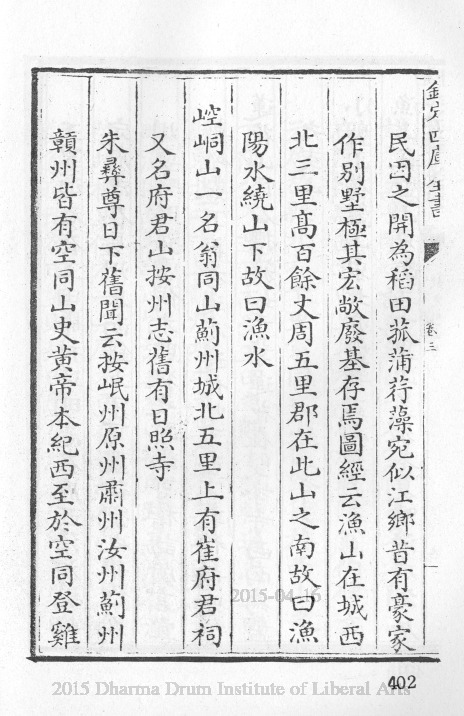 欽定四庫全書
卷三
民因之開為稻田菰蒲荇藻宛似江鄉昔有豪家
作别墅極其宏敞廢基存焉圖經云漁山在城西
北三里髙百餘丈周五里郡在此山之南故曰漁
陽水繞山下故曰漁水
崆峒山一名翁同山薊州城北五里上有崔府君祠
又名府君山按州志舊有日照寺
朱彞尊日下舊聞云按岷州原州肅州汝州薊州
贑州皆有空同山史黄帝本紀西至於空同登雞
2015-04-16
402
2015 Dharma Drum Institute of Liberal Arts